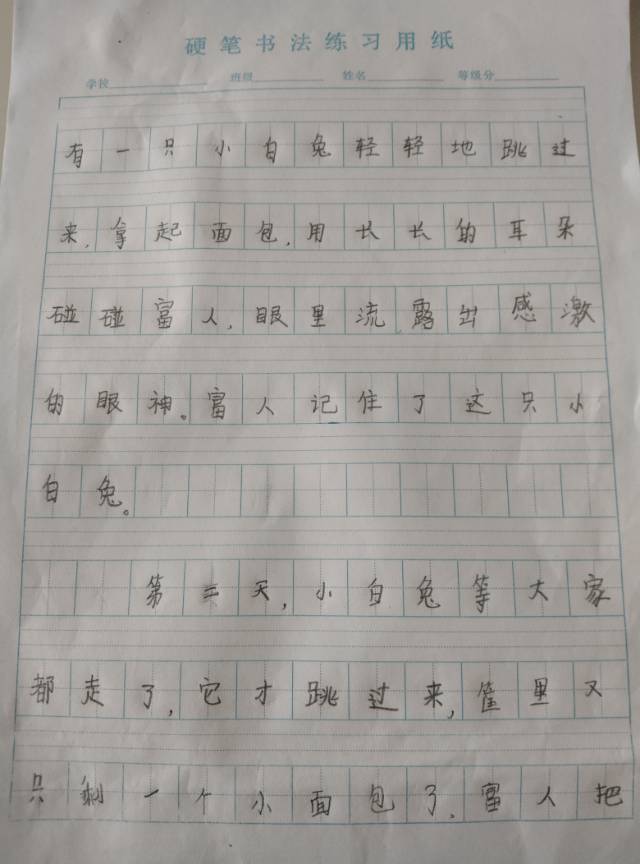 硬笔书法练习用纸
学校 班级 姓名 等级分
有一只小白兔轻轻地跳过
来,拿起面包,用长长的耳朵
碰碰富人,眼里流露出感激
的眼神。富人记住了这只小
白兔。
第三天,小白兔等大家
都走了,它才跳过来,筐里又
只剩一个小面包了,富人把